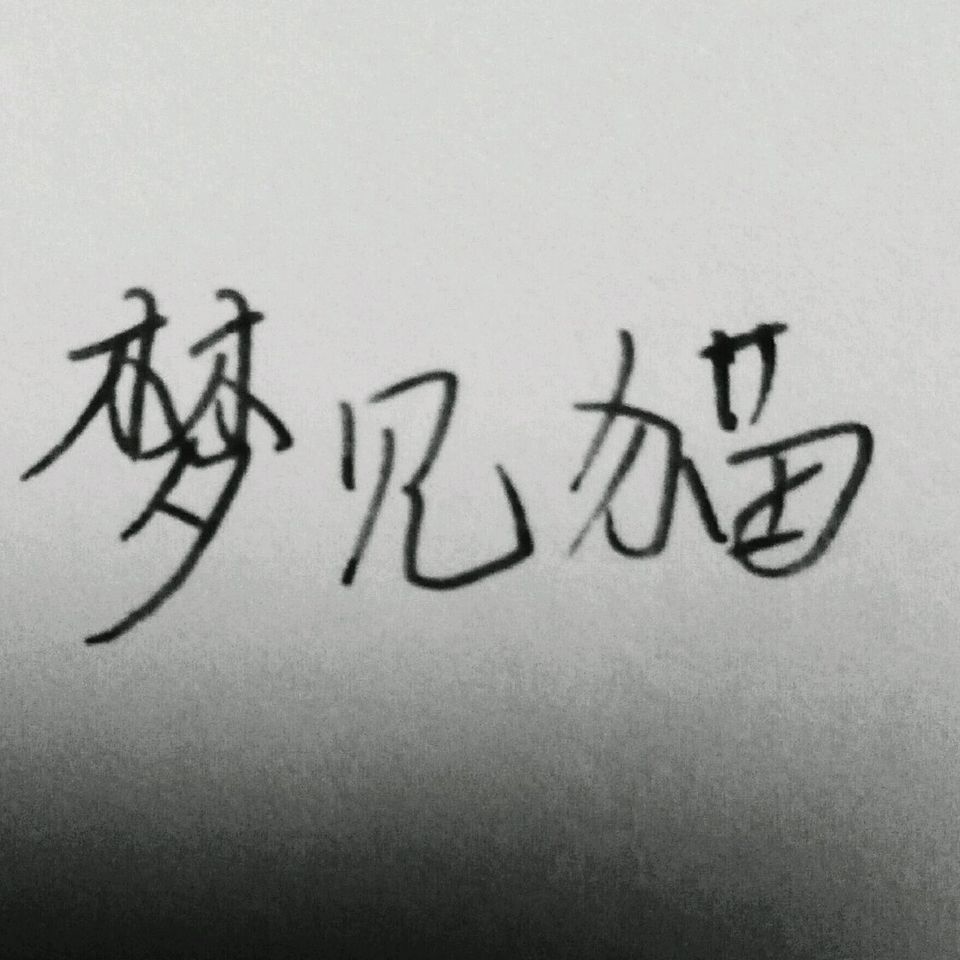 梦见猫